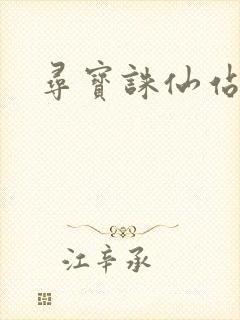 尋寶誅仙佔
江辛承